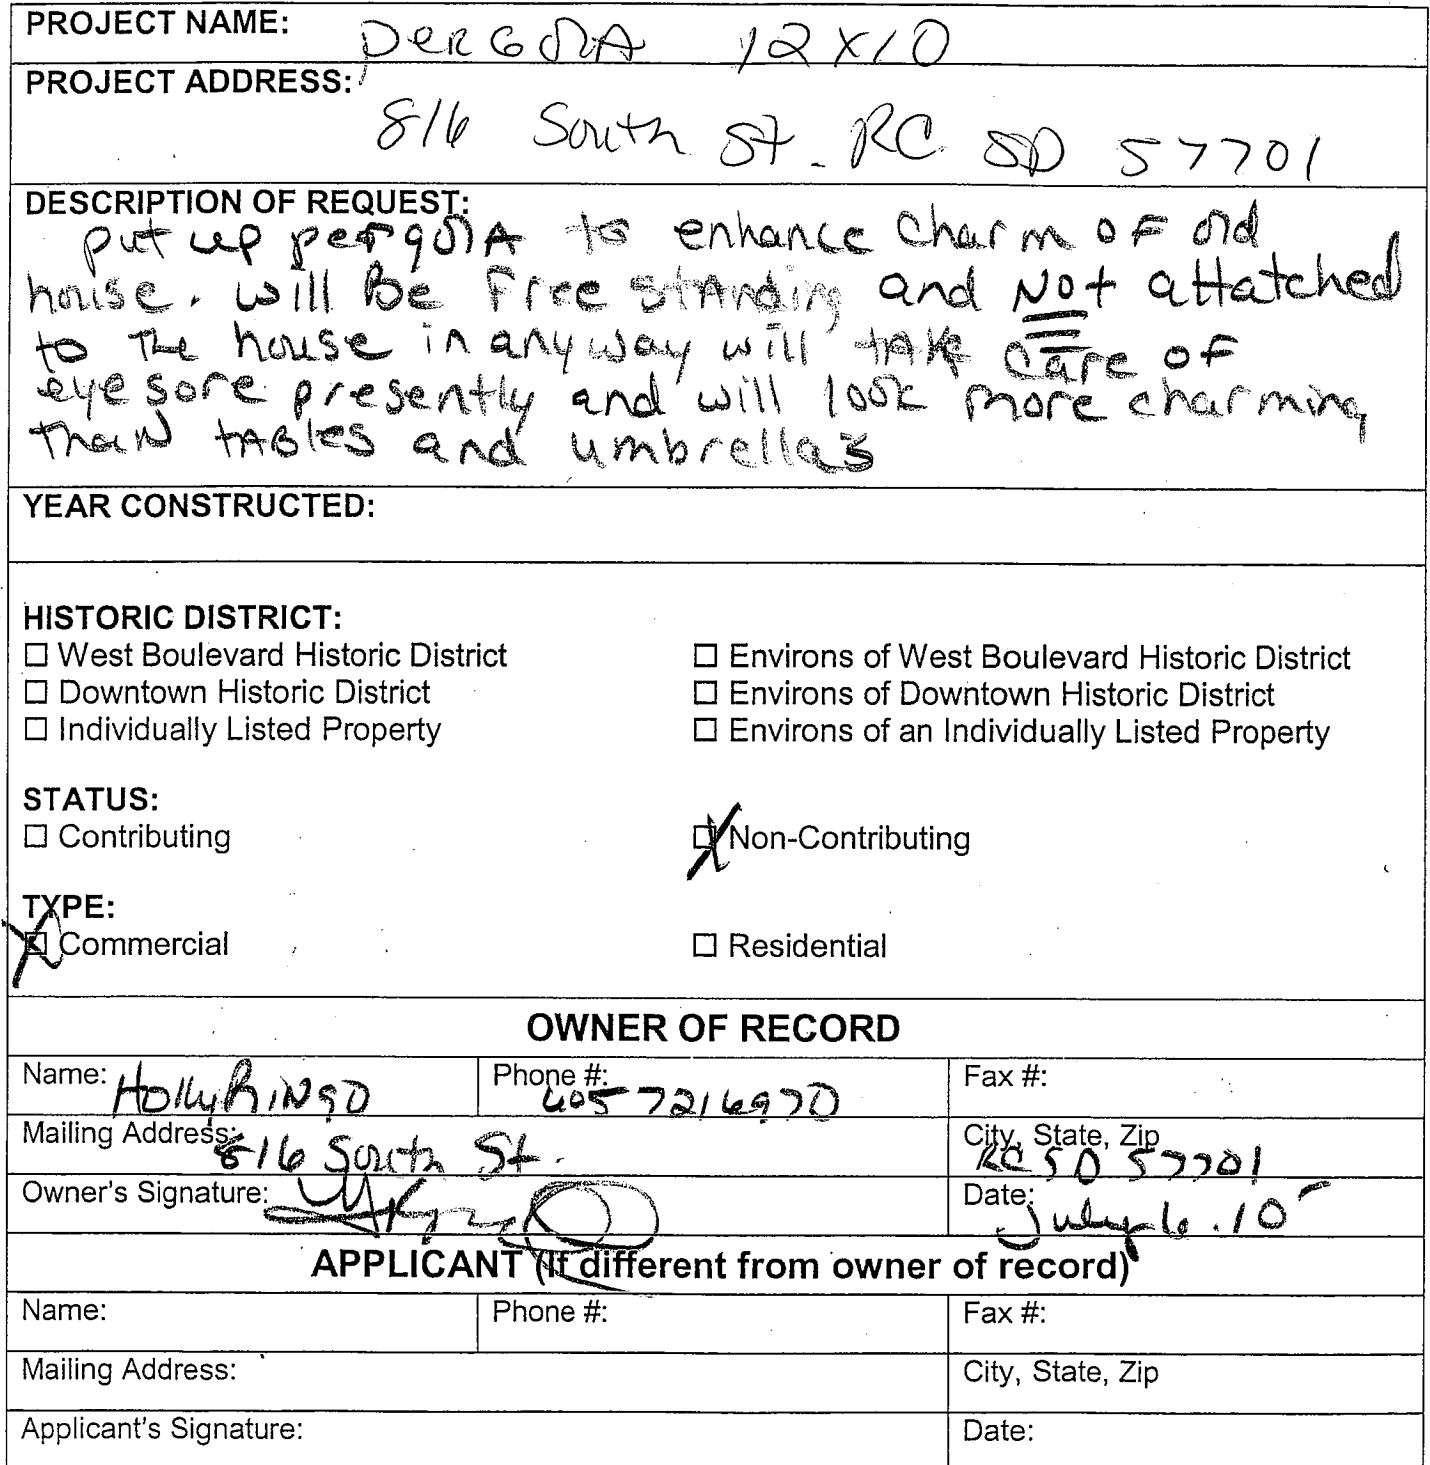 PROJECT NAME: PERGOLA 12X10
PROJECT ADDRESS:
816 South St. RC SD 57701
DESCRIPTION OF REQUEST:
put up pergolA to enhance charm OF old
house. will Be Free stAnding and Not attatched
to The house in anyway will tAKe care of
eyesore presently and will look more charming
than tABles and umbrellas
YEAR CONSTRUCTED:
HISTORIC DISTRICT:
☐ West Boulevard Historic District ☐ Environs of West Boulevard Historic District
☐ Downtown Historic District ☐ Environs of Downtown Historic District
☐ Individually Listed Property ☐ Environs of an Individually Listed Property
STATUS:
☐ Contributing ☒ Non-Contributing
TYPE:
☒ Commercial ☐ Residential
OWNER OF RECORD
Name: Holly RiNgo Phone #: 605 7216970 Fax #:
Mailing Address: 816 South St. City, State, Zip RC SD 57701
Owner's Signature: Date: July 6.10
APPLICANT (If different from owner of record)
Name: Phone #: Fax #:
Mailing Address: City, State, Zip
Applicant's Signature: Date: